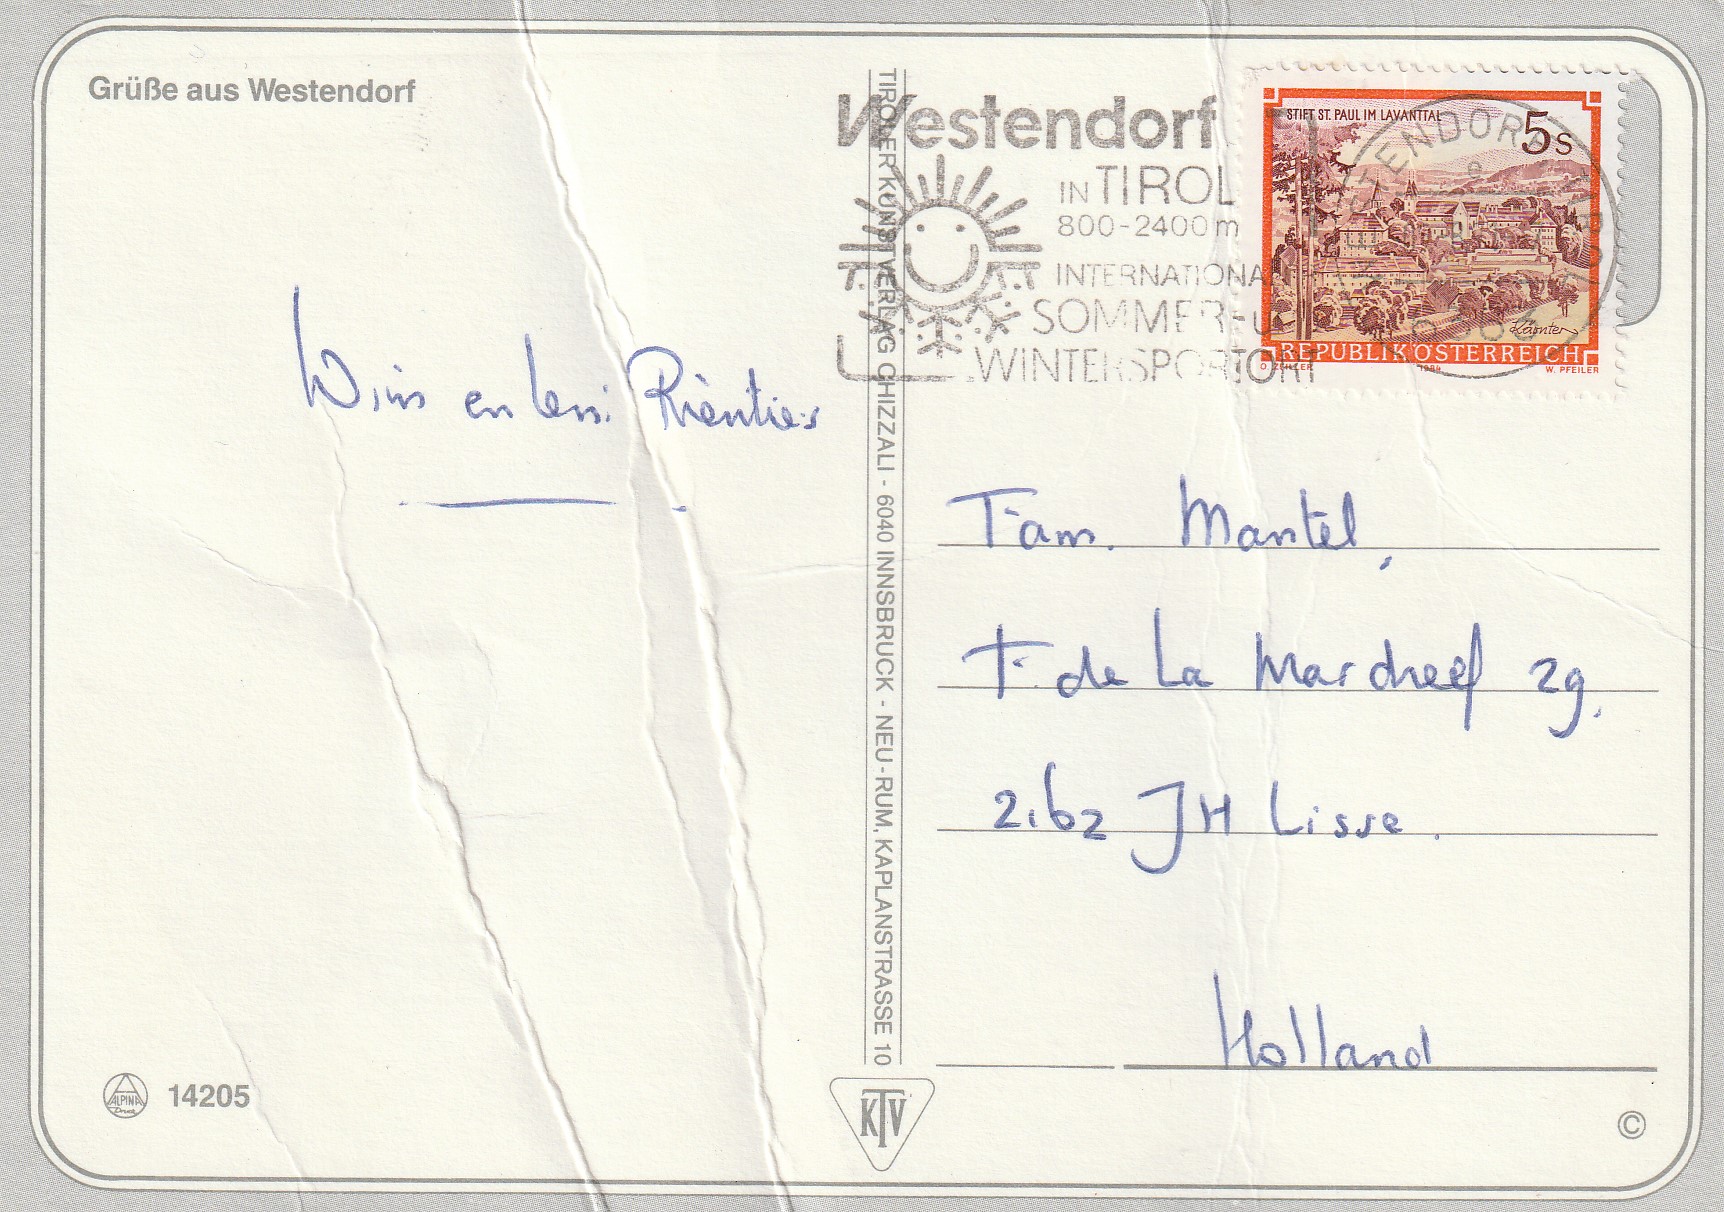 Grüße aus Westendorf
Westendorf
IN TIROL
800-2400m
INTERNATIONAL
SOMMER-U
WINTERSPORTORT
STIFT ST. PAUL IM LAVANTTAL
5 S
Kärnten
REPUBLIK ÖSTERREICH
O. ZEILLER
W. PFEILER
TIROLER KUNSTVERLAG CHIZZALI - 6040 INNSBRUCK - NEU-RUM, KAPLANSTRASSE 10
Wim en Leni Rienties
Fam. Mantel,
de La Mar dreef 29.
2162 JH Lisse.
Holland
ALPINA
Druck
14205
KTV
©